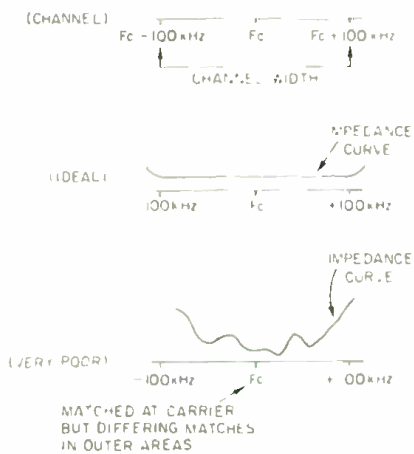 (CHANNEL)
Fc -100 KHz Fc Fc +100 KHz
CHANNEL WIDTH
IMPEDANCE
CURVE
(IDEAL)
100 KHz Fc +100 KHz
IMPEDANCE
CURVE
(VERY POOR)
-100 KHz Fc +100 KHz
MATCHED AT CARRIER
BUT DIFFERING MATCHES
IN OUTER AREAS